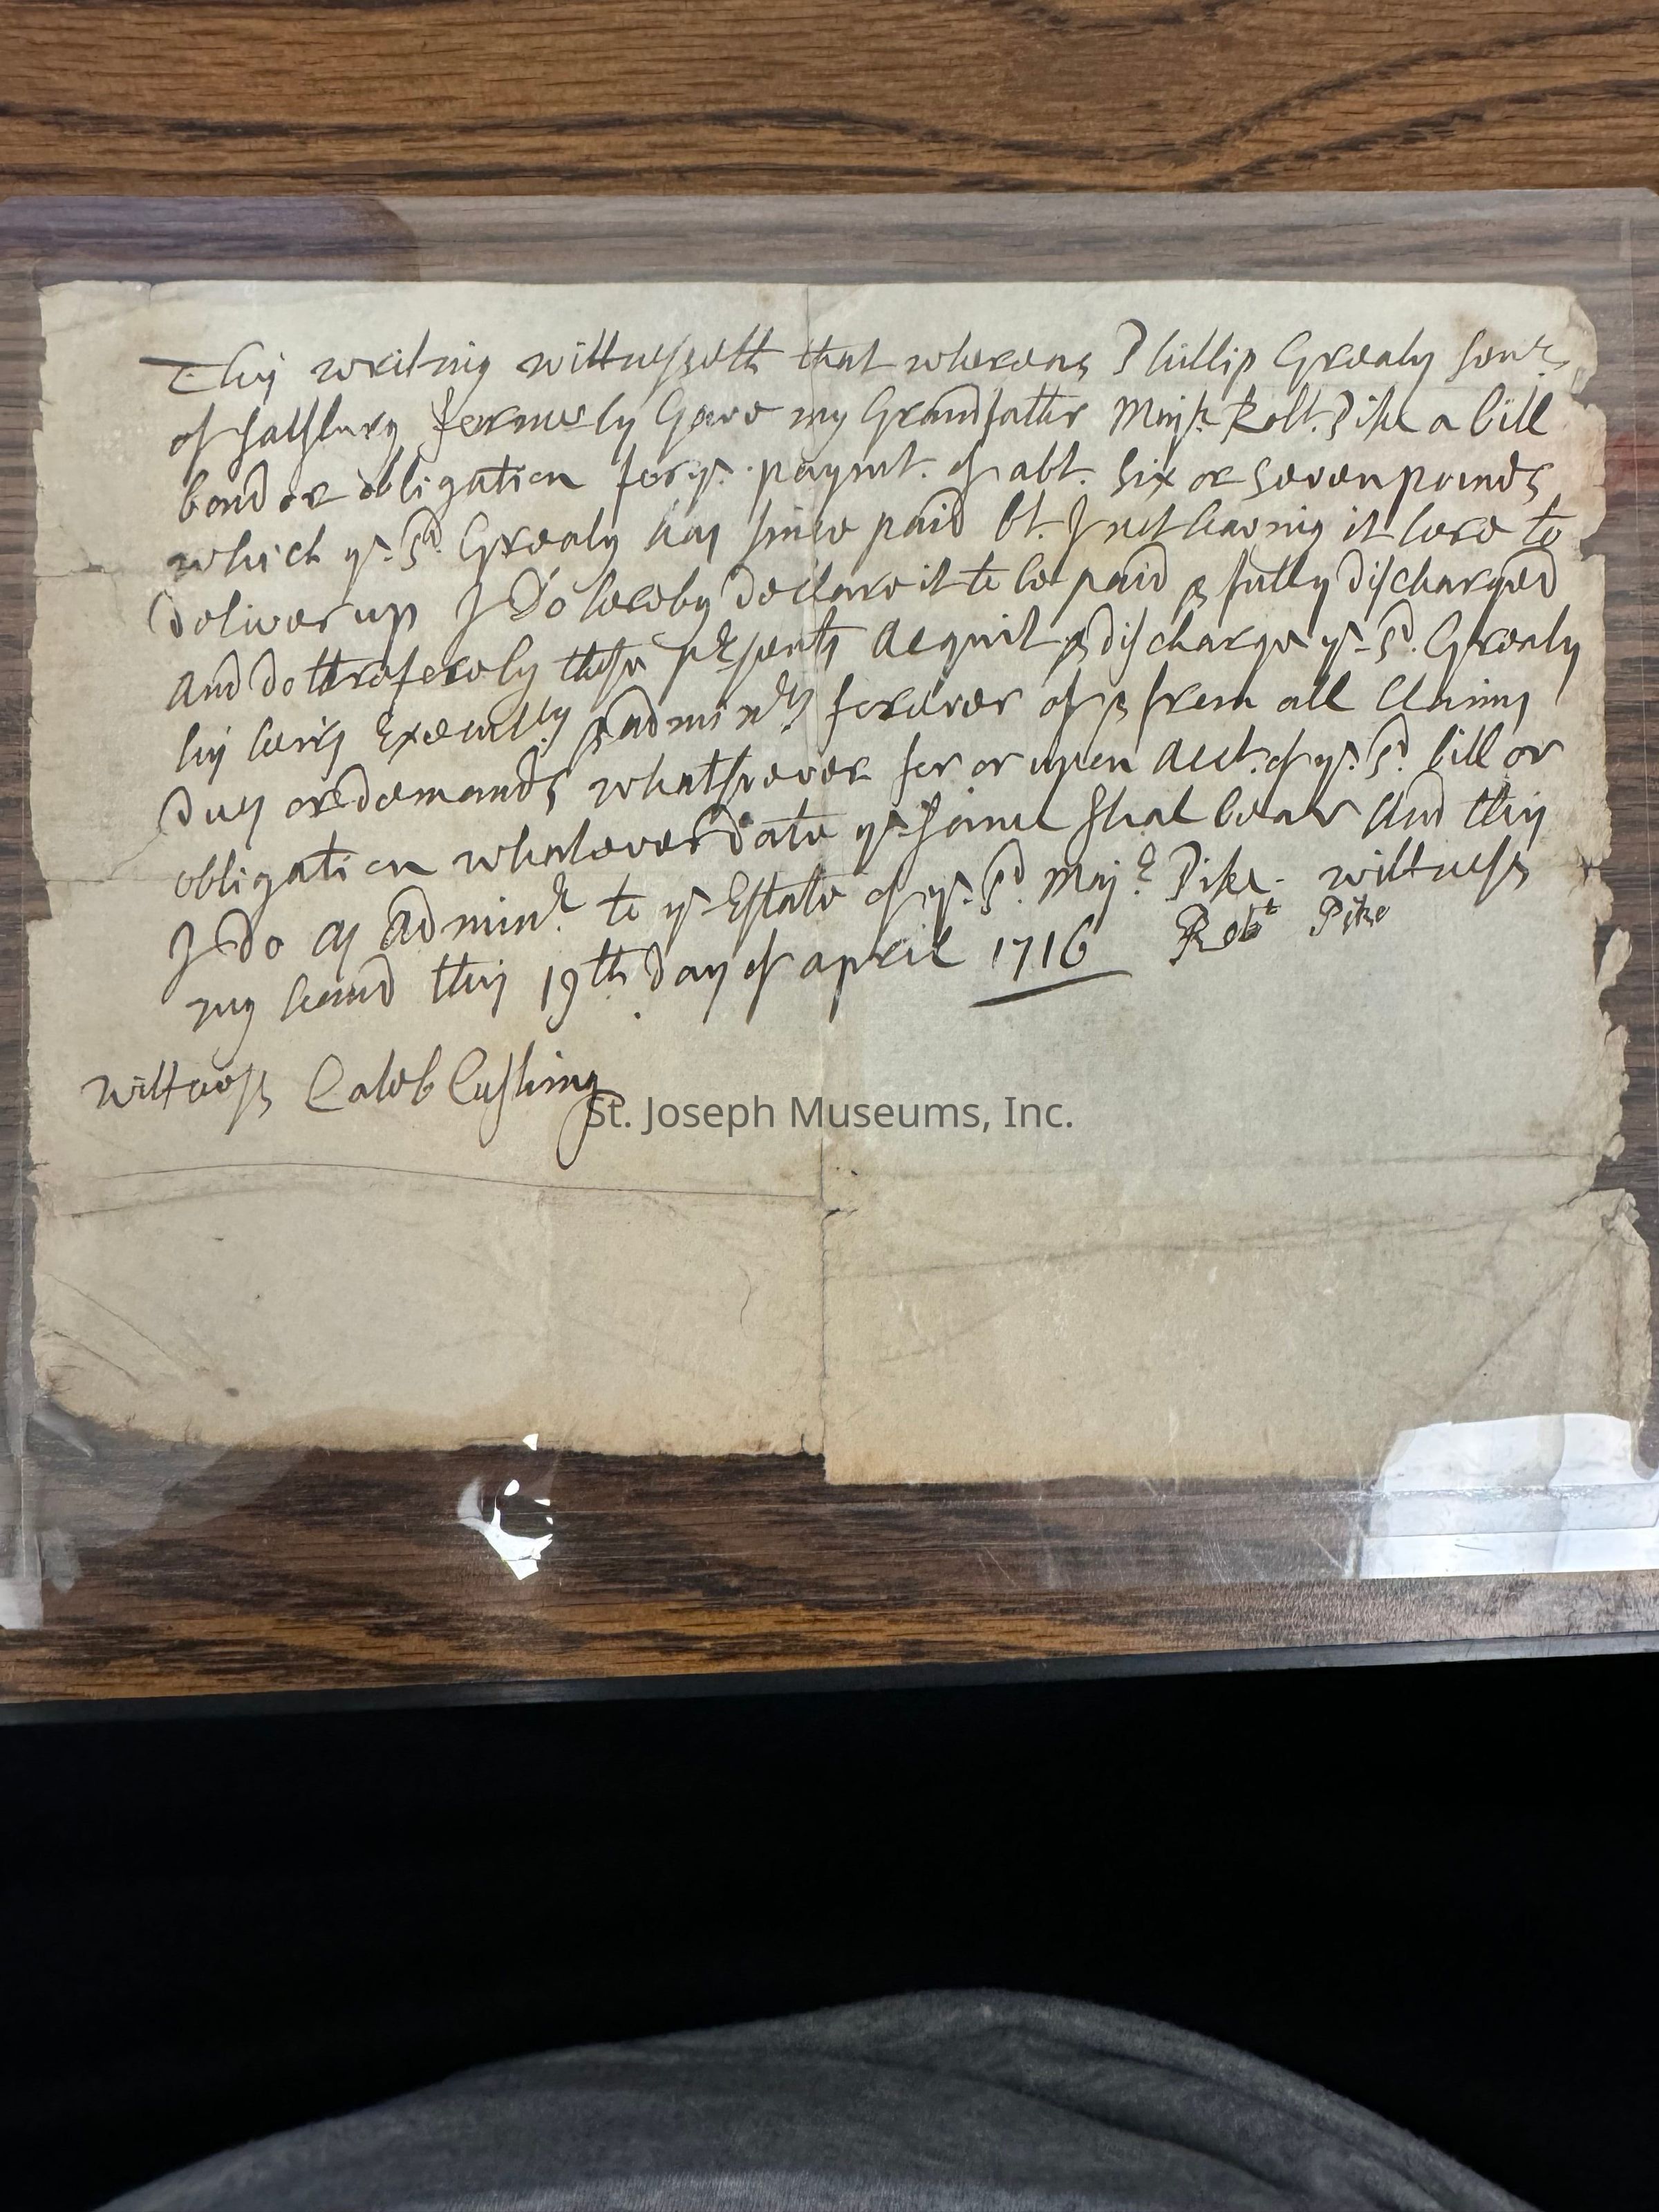 This writing wittnesseth that whereas Phillip Grealy senr.
of Salsbury formerly Gave my Grandfather Majr. Robt. Pike a bill
bond or obligation for ye. paymt. of abt. six or seven pounds
which ye. sd. Grealy has since paid bt. I not having it here to
deliver up I Do hereby declare it to be paid & fully discharged
And do therefore by these presents Acquit & discharge ye. sd. Grealy
his heirs Executrs & Adminrs forever of & from all Claims
Dues or demands whatsoever for or upon Acct. of ye. sd. bill or
obligation whatever date ye same shal bear And this
I Do as Adminr. to ye Estate of ye. sd. Majr. Pike. wittness
my hand this 19th. day of april 1716 Robt Pike
Wittness Caleb Cushing
St. Joseph Museums, Inc.